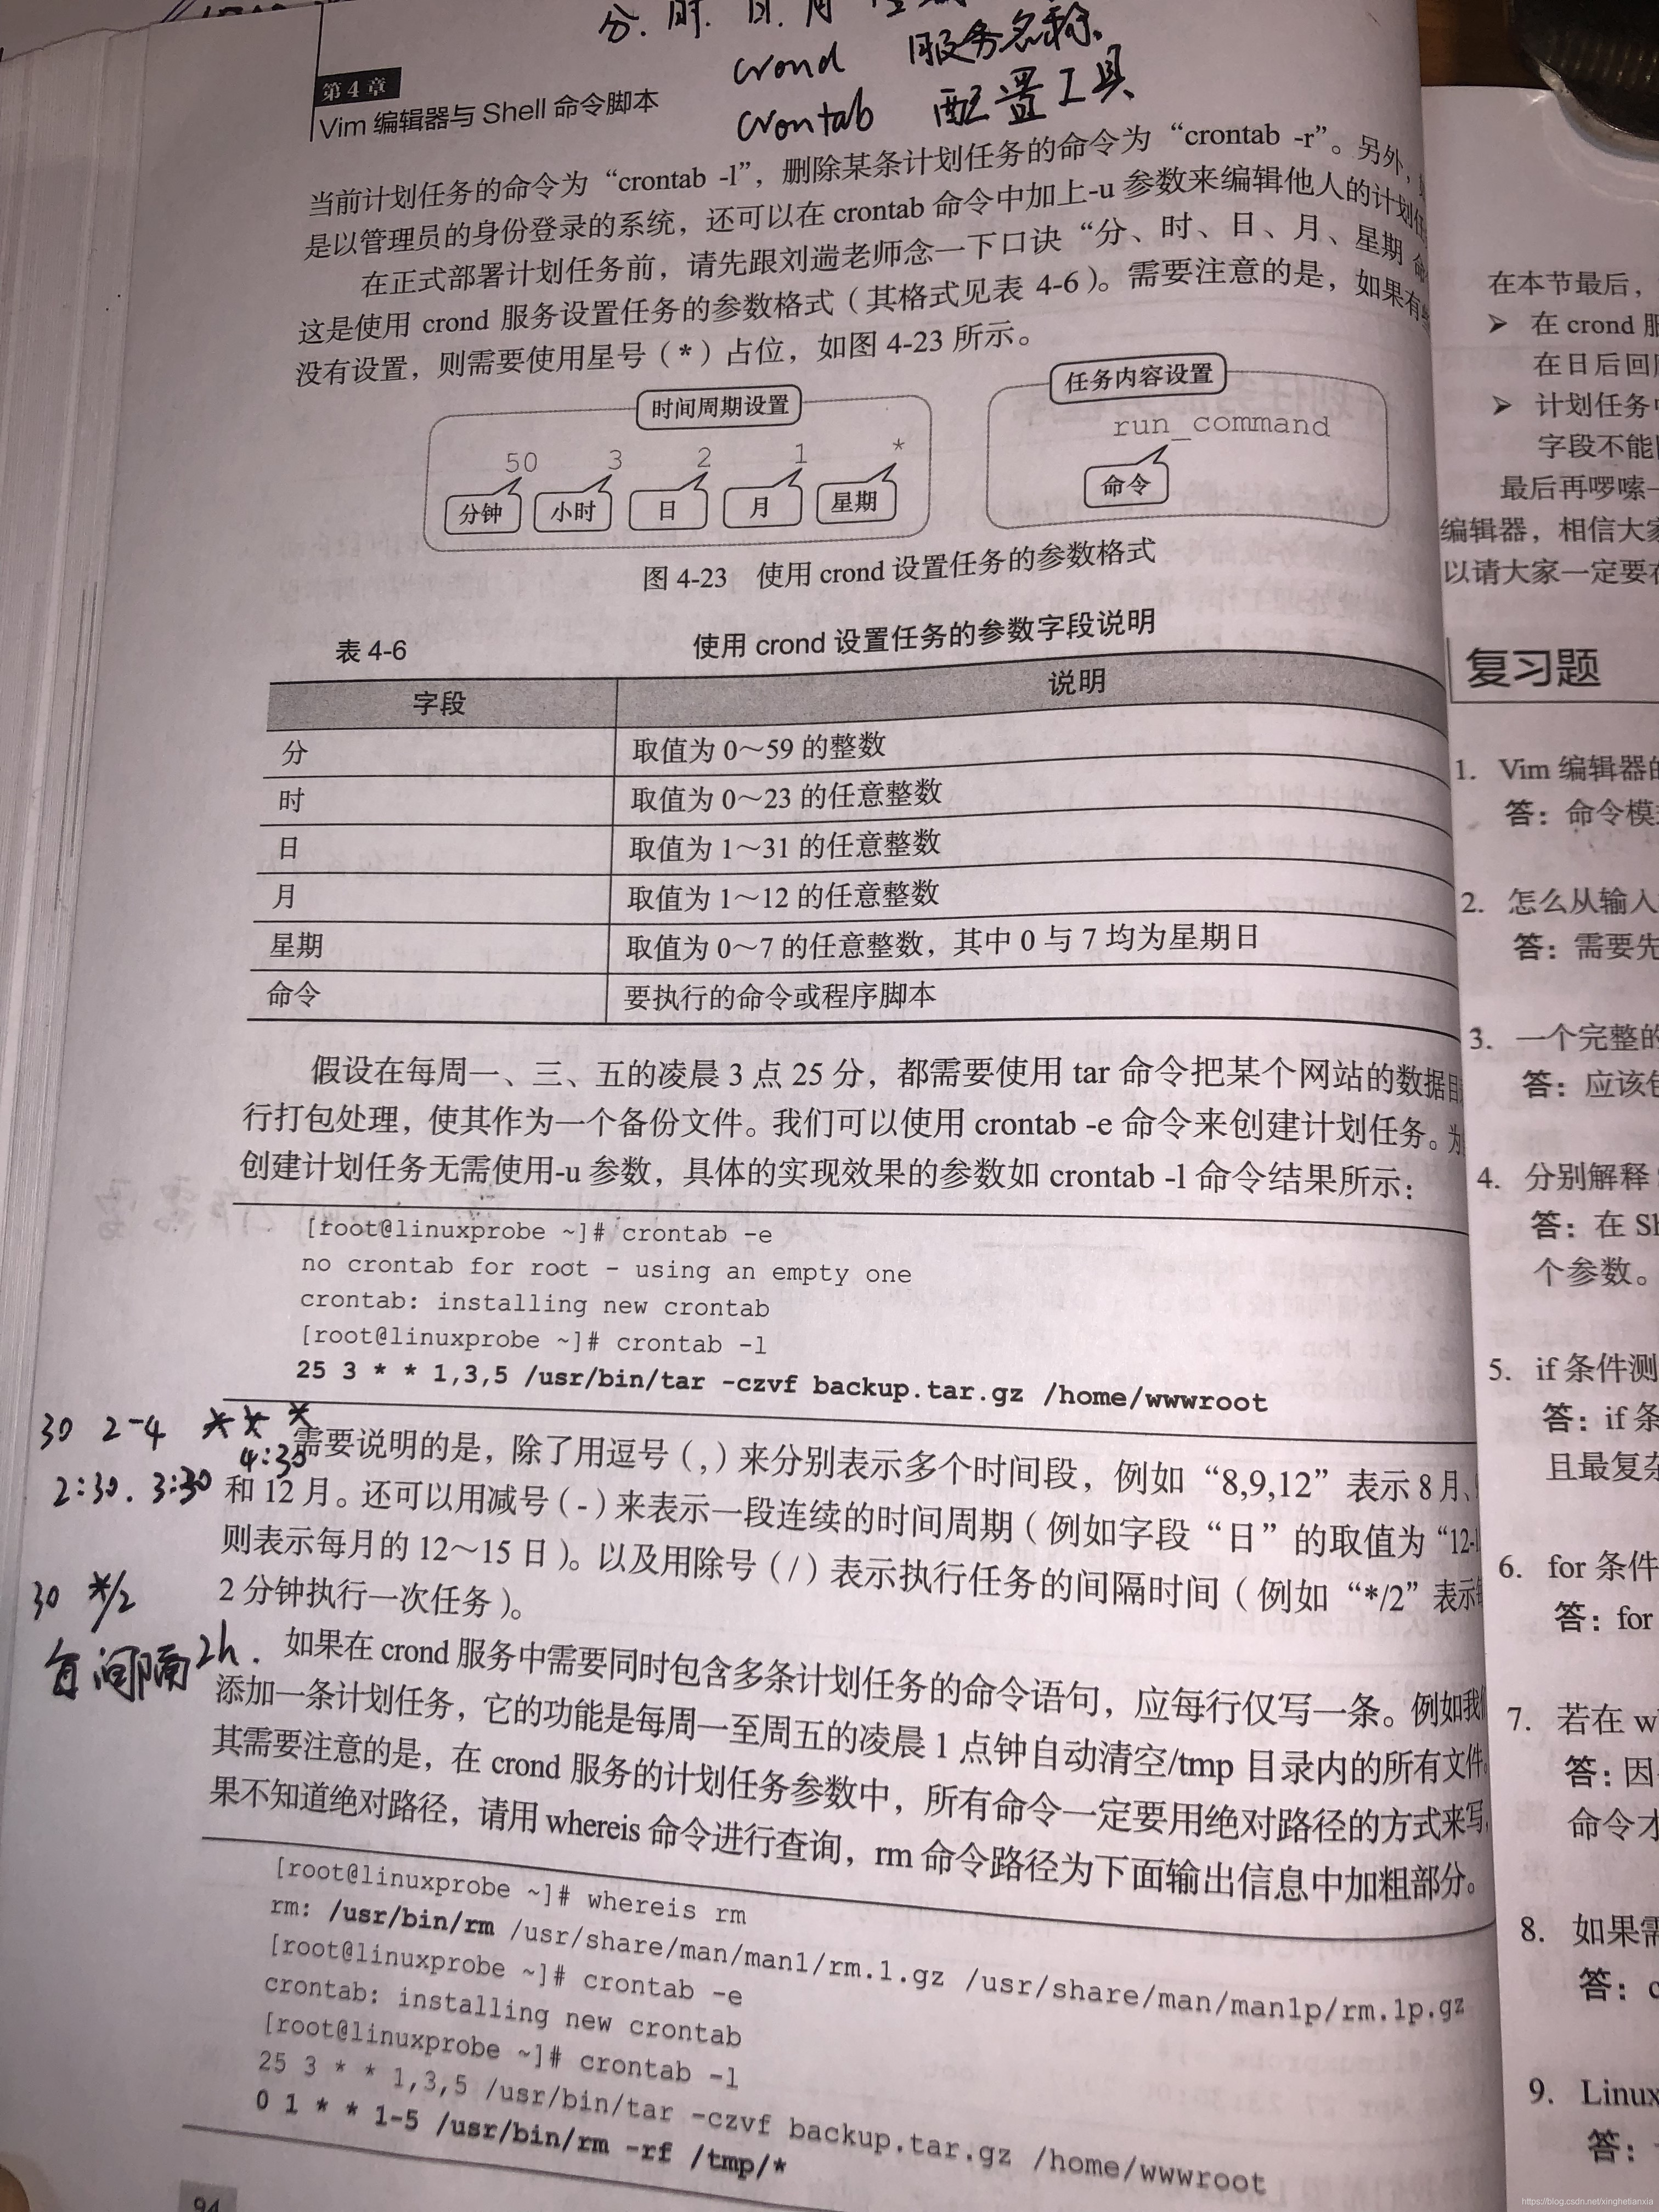 分.时.日.月
crond 服务名称.
crontab 配置工具
第4章
Vim 编辑器与 Shell 命令脚本
当前计划任务的命令为“crontab -l”，删除某条计划任务的命令为“crontab -r”。另外，
是以管理员的身份登录的系统，还可以在 crontab 命令中加上-u 参数来编辑他人的计划
在正式部署计划任务前，请先跟刘遄老师念一下口诀“分、时、日、月、星期
这是使用 crond 服务设置任务的参数格式（其格式见表 4-6）。需要注意的是，如果有
没有设置，则需要使用星号（*）占位，如图 4-23 所示。
时间周期设置 任务内容设置
50 3 2 1 * run_command
分钟 小时 日 月 星期 命令
图 4-23 使用 crond 设置任务的参数格式
表 4-6 使用 crond 设置任务的参数字段说明
字段 说明
分 取值为 0～59 的整数
时 取值为 0～23 的任意整数
日 取值为 1～31 的任意整数
月 取值为 1～12 的任意整数
星期 取值为 0～7 的任意整数，其中 0 与 7 均为星期日
命令 要执行的命令或程序脚本
假设在每周一、三、五的凌晨 3 点 25 分，都需要使用 tar 命令把某个网站的数据
行打包处理，使其作为一个备份文件。我们可以使用 crontab -e 命令来创建计划任务。为
创建计划任务无需使用-u 参数，具体的实现效果的参数如 crontab -l 命令结果所示：
[root@linuxprobe ~]# crontab -e
no crontab for root - using an empty one
crontab: installing new crontab
[root@linuxprobe ~]# crontab -l
25 3 * * 1,3,5 /usr/bin/tar -czvf backup.tar.gz /home/wwwroot
30 2-4 * * *
2:30. 3:30 4:30
需要说明的是，除了用逗号（,）来分别表示多个时间段，例如“8,9,12”表示 8 月、
和 12 月。还可以用减号（-）来表示一段连续的时间周期（例如字段“日”的取值为“12-
则表示每月的 12～15 日）。以及用除号（/）表示执行任务的间隔时间（例如“*/2”表示
2 分钟执行一次任务）。
30 */2
每间隔2h.
如果在 crond 服务中需要同时包含多条计划任务的命令语句，应每行仅写一条。例如我
添加一条计划任务，它的功能是每周一至周五的凌晨 1 点钟自动清空/tmp 目录内的所有文件。
其需要注意的是，在 crond 服务的计划任务参数中，所有命令一定要用绝对路径的方式来写，
果不知道绝对路径，请用 whereis 命令进行查询，rm 命令路径为下面输出信息中加粗部分。
[root@linuxprobe ~]# whereis rm
rm: /usr/bin/rm /usr/share/man/man1/rm.1.gz /usr/share/man/man1p/rm.1p.gz
[root@linuxprobe ~]# crontab -e
crontab: installing new crontab
[root@linuxprobe ~]# crontab -l
25 3 * * 1,3,5 /usr/bin/tar -czvf backup.tar.gz /home/wwwroot
0 1 * * 1-5 /usr/bin/rm -rf /tmp/*
94
在本节最后，
➢ 在 crond
在日后回
➢ 计划任务
字段不能
最后再啰嗦
编辑器，相信大家
以请大家一定要在
复习题
1. Vim 编辑器的
答：命令模
2. 怎么从输入
答：需要先
3. 一个完整的
答：应该
4. 分别解释
答：在 Sh
个参数。
5. if 条件测
答：if 条
且最复杂
6. for 条件
答：for
7. 若在 w
答：因
命令才
8. 如果需
答：c
9. Linux
答：
https://blog.csdn.net/xinghetianxia